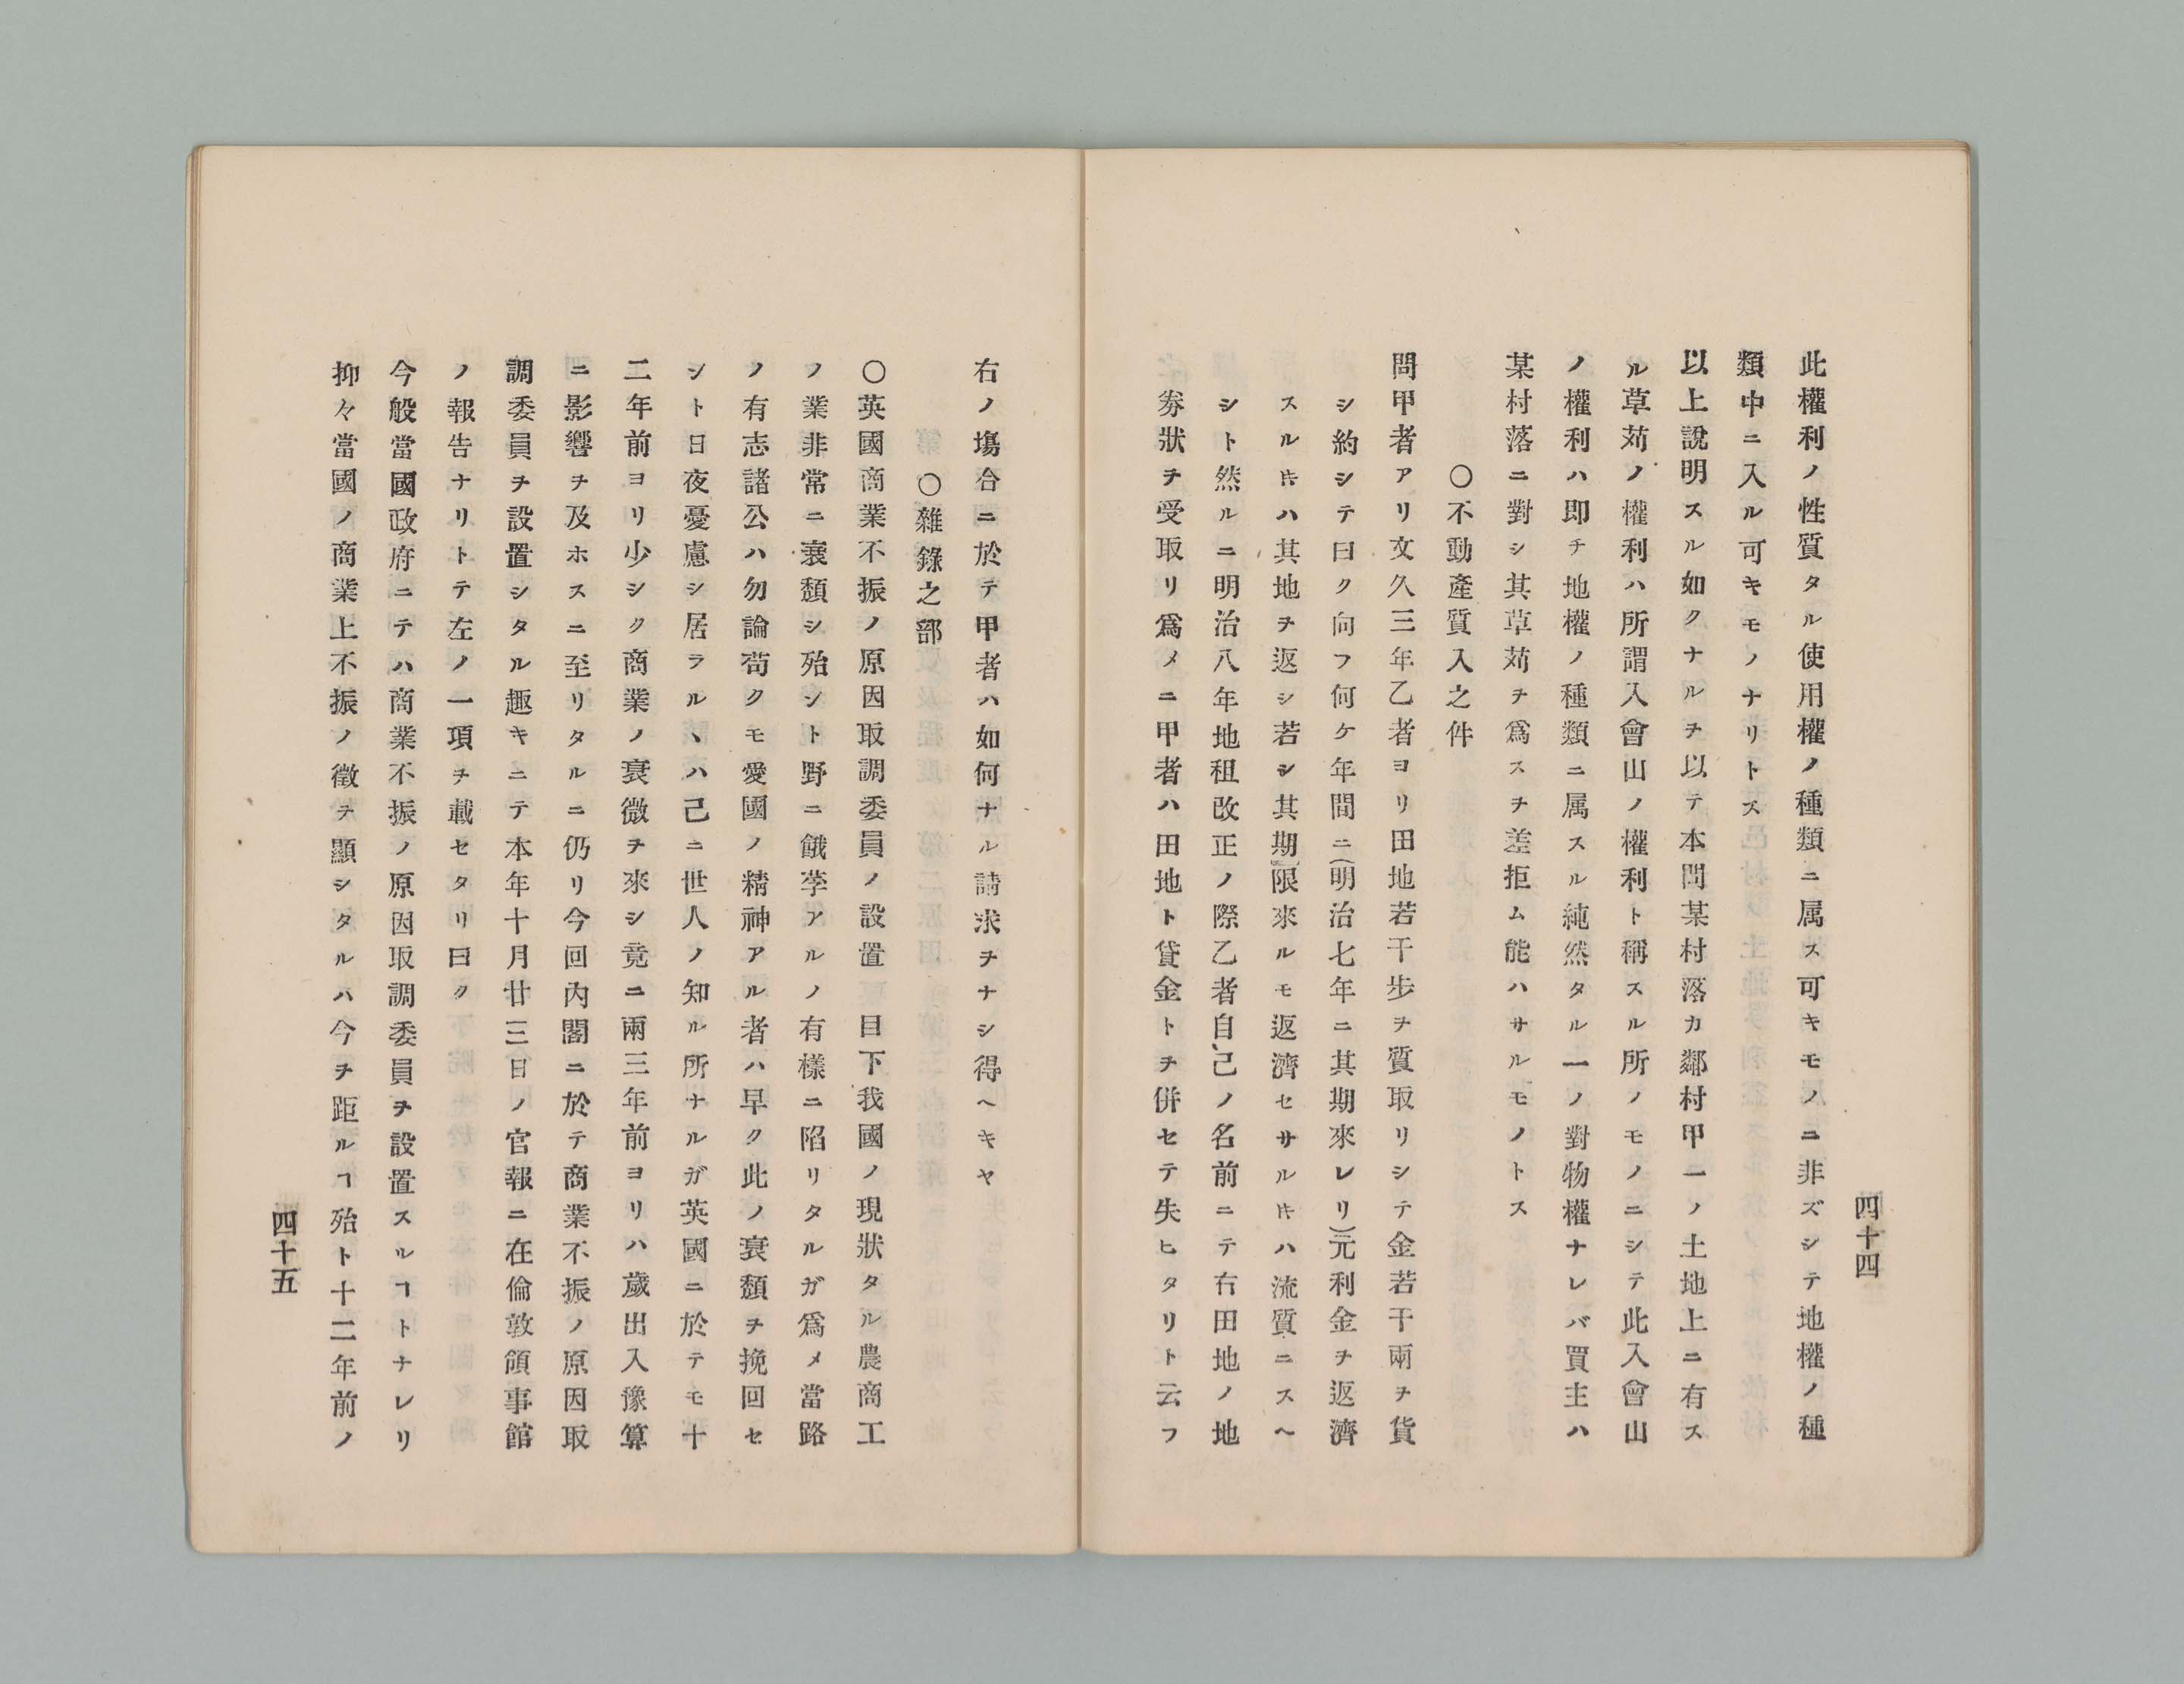 四十四
此權利ノ性質タル使用權ノ種類ニ属ス可キモノニ非ズシテ地權ノ種
類中ニ入ル可キモノナリトス
以上說明スル如クナルヲ以テ本問某村落カ鄰村甲一ノ土地上ニ有ス
ル草苅ノ權利ハ所謂入會山ノ權利ト稱スル所ノモノニシテ此入會山
ノ權利ハ即チ地權ノ種類ニ属スル純然タル一ノ對物權ナレバ買主ハ
某村落ニ對シ其草苅ヲ爲スヲ差拒ム能ハサルモノトス
〇不動產質入之件
問甲者アリ文久三年乙者ヨリ田地若干步ヲ質取リシテ金若干兩ヲ貨
シ約シテ曰ク向フ何ケ年間ニ(明治七年ニ其期來レリ)元利金ヲ返濟
スルキハ其地ヲ返シ若シ其期限來ルモ返濟セサルキハ流質ニスヘ
シト然ルニ明治八年地租改正ノ際乙者自己ノ名前ニテ右田地ノ地
劵狀ヲ受取リ爲メニ甲者ハ田地ト貸金トヲ併セテ失ヒタリト云フ
右ノ塲合ニ於テ甲者ハ如何ナル請求ヲナシ得ヘキヤ
〇雜錄之部
〇英國商業不振ノ原因取調委員ノ設置 目下我國ノ現狀タル農商工
ノ業非常ニ衰頽シ殆ント野ニ餓莩アルノ有樣ニ陷リタルガ爲メ當路
ノ有志諸公ハ勿論苟クモ愛國ノ精神アル者ハ早ク此ノ衰頽ヲ挽回セ
シト日夜憂慮シ居ラルヽハ己ニ世人ノ知ル所ナルガ英國ニ於テモ十
二年前ヨリ少シク商業ノ衰微ヲ來シ竟ニ兩三年前ヨリハ歲出入豫算
ニ影響ヲ及ホスニ至リタルニ仍リ今回內閣ニ於テ商業不振ノ原因取
調委員ヲ設置シタル趣キニテ本年十月廿三日ノ官報ニ在倫敦領事館
ノ報告ナリトテ左ノ一項ヲ載セタリ曰ク
今般當國政府ニテハ商業不振ノ原因取調委員ヲ設置スルヿトナレリ
抑々當國ノ商業上不振ノ徵ヲ顯シタルハ今ヲ距ルヿ殆ト十二年前ノ
四十五